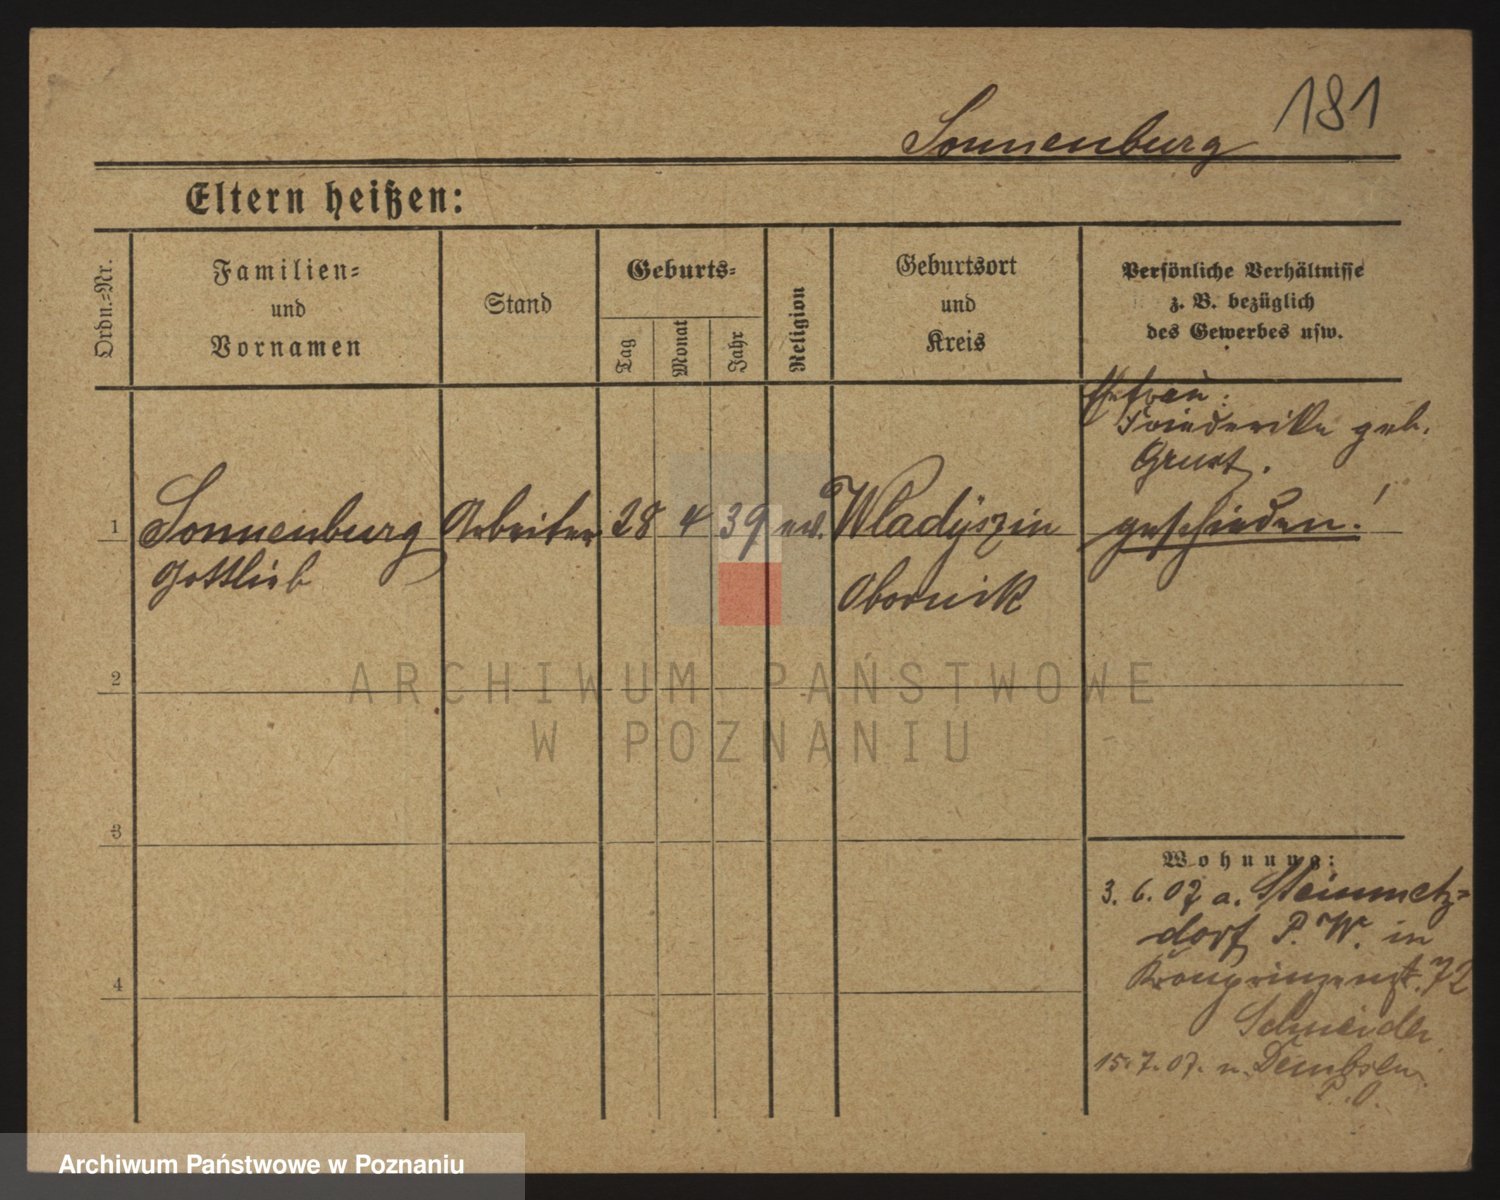 181
Sonnenburg
Eltern heißen:
Ordn.=Nr.
Familien=
und
Vornamen
Stand
Geburts=
Tag
Monat
Jahr
Religion
Geburtsort
und
Kreis
Persönliche Verhältnisse
z. B. bezüglich
des Gewerbes usw.
Ehefrau:
Friederike geb.
1
Sonnenburg
Gottlieb
Arbeiter
28
4
39
ev.
Wladÿszin
Obornik
geschieden!
2
3
4
Wohnung:
3. 6. 07 a. Steinmetz=
dorf P. W. in
Kronprinzenst. 72
Schneider
15. 7. 07. n. Dembsen
P. O.
ARCHIWUM PAŃSTWOWE
W POZNANIU
Archiwum Państwowe w Poznaniu